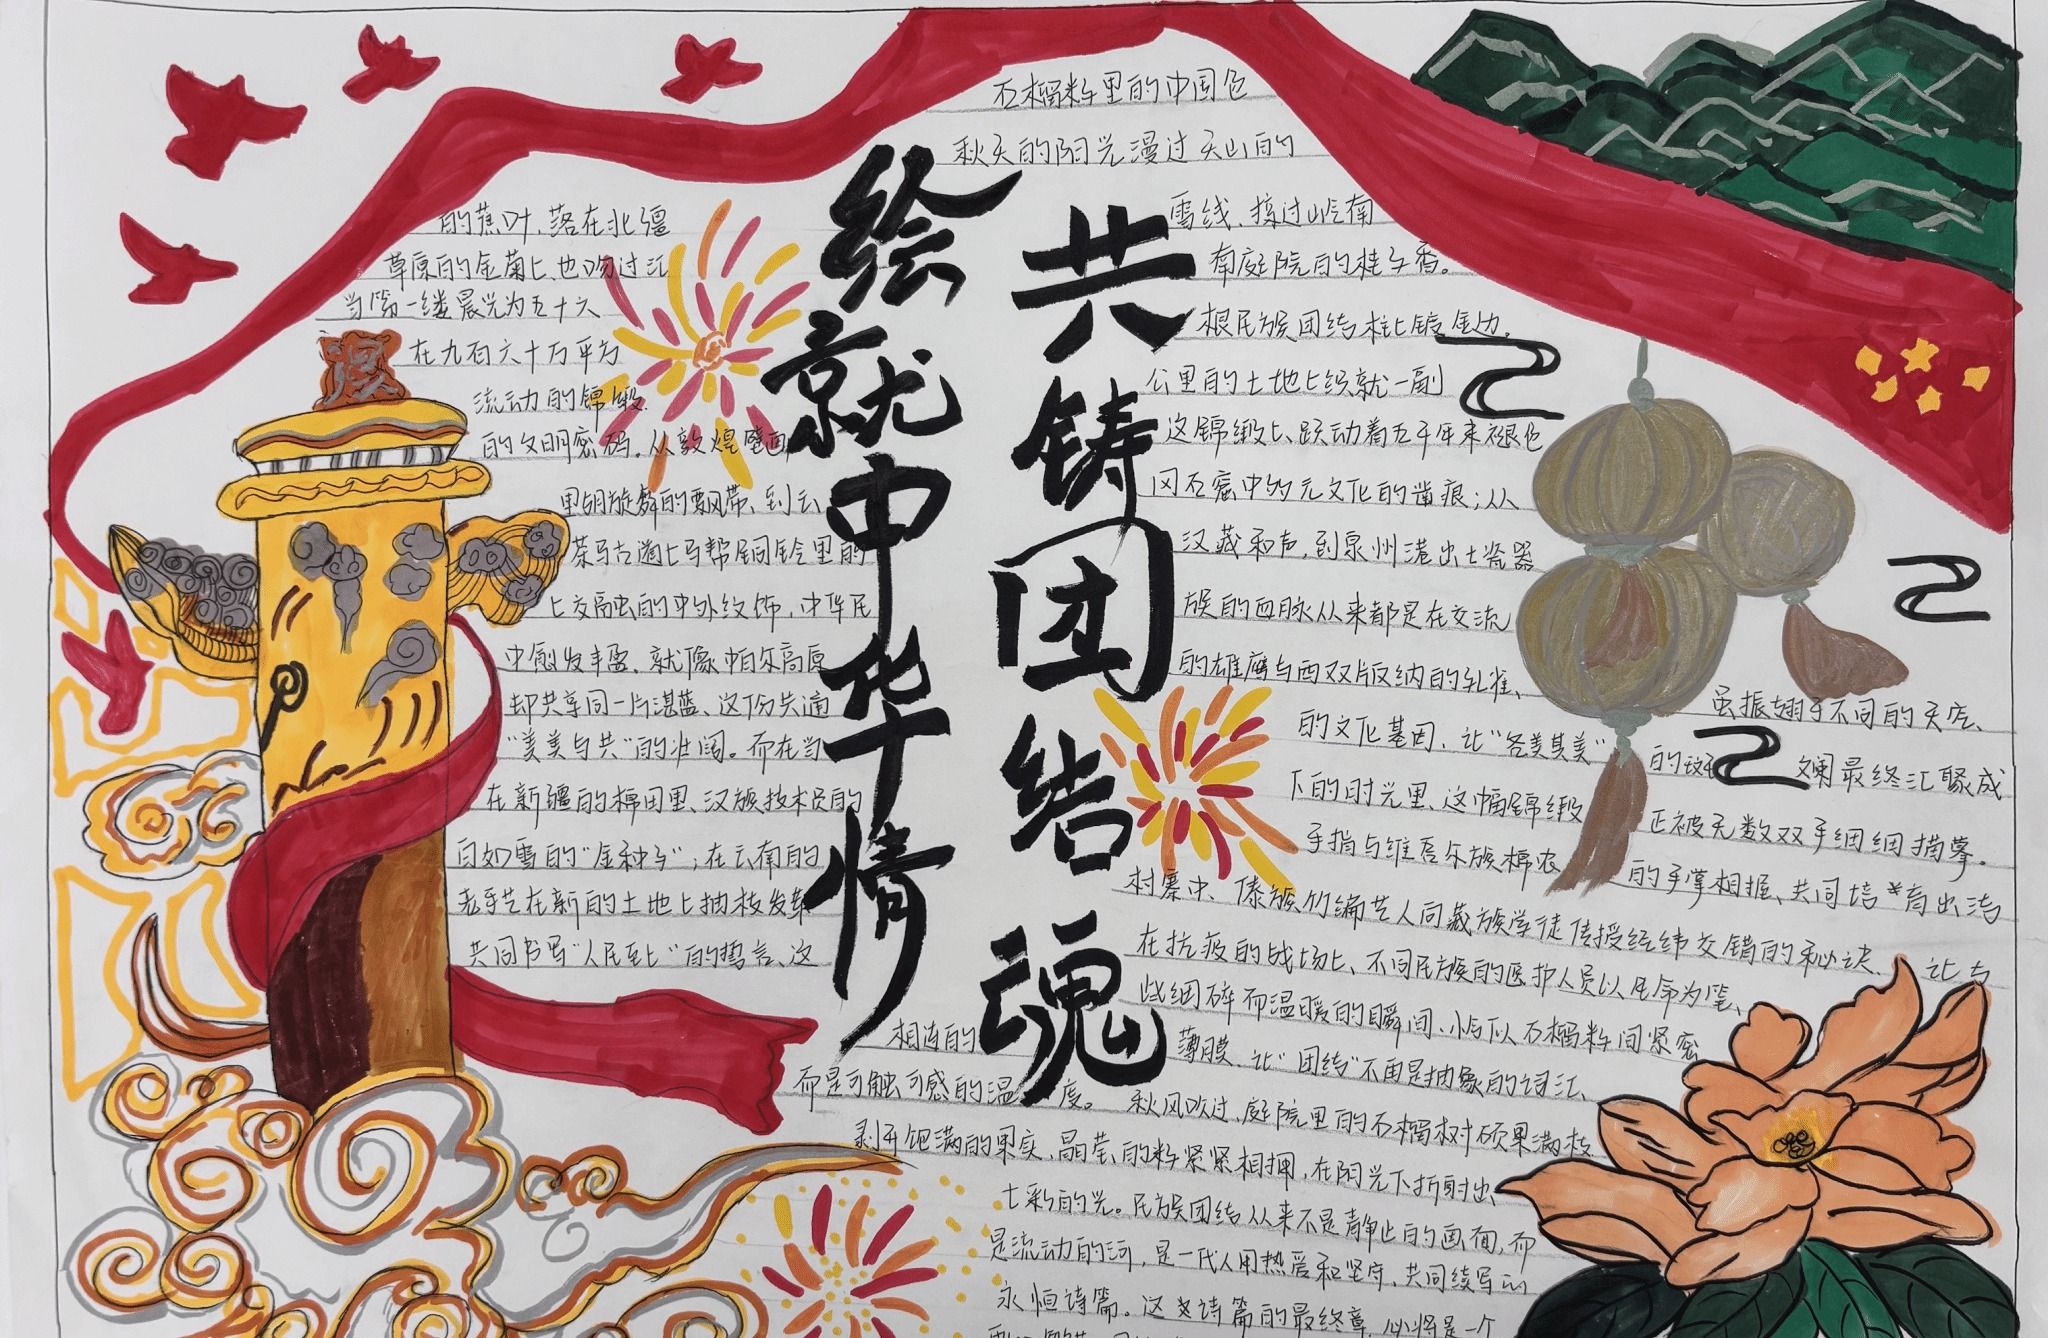 共铸团结魂
绘就中华情
石榴籽里的中国色
秋天的阳光漫过天山的
雪线、掠过岭南
的蕉叶,落在北疆
草原的金菊上、也吻过江
南庭院的桂子香。
当第一缕晨光为五十六
根民族团结柱上镀金边,
在九百六十万平方
公里的土地上织就一副
流动的锦缎.
这锦缎上、跃动着五千年来褪色
的文明密码。从敦煌壁画
里胡旋舞的飘带、到云
冈石窟中多元文化的凿痕;从
茶马古道上马帮铜铃里的
汉藏和声,到泉州港出土瓷器
上交融的中外纹饰,中华民
族的血脉从来都是在交流
中愈发丰盈.就像帕尔高原
的雄鹰与西双版纳的孔雀、虽振翅于不同的天空、
却共享同一片湛蓝、这份共通
的文化基因、让"各美其美"的斑斓最终汇聚成
"美美与共"的壮阔。而在当
下的时光里、这幅锦缎正被无数双手细细描摹。
在新疆的棉田里、汉族技术员的
手指与维吾尔族棉农的手掌相握、共同培*育出洁
白如雪的"金种子";在云南的
村寨中、傣族竹编艺人向藏族学徒传授经纬交错的秘诀、让古
老手艺在新的土地上抽枝发芽
在抗疫的战场上、不同民族的医护人员以生命为笔、
共同书写"人民至上"的誓言、这
些细碎而温暖的瞬间,恰似石榴籽间紧密
相连的薄膜.让"团结"不再是抽象的词汇、
而是可触可感的温度。秋风吹过,庭院里的石榴树硕果满枝
剥开饱满的果实,晶莹的籽紧紧相拥,在阳光下折射出
七彩的光。民族团结从来不是静止的画面,而
是流动的河,是一代人用热爱和坚守,共同续写的
永恒诗篇。这支诗篇的最终章,必将是一个